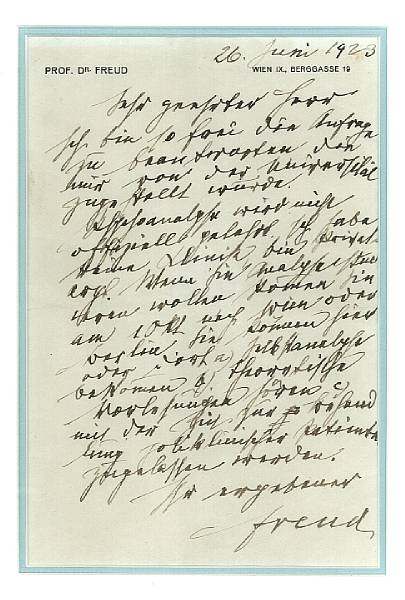 26. Juni 1923
PROF. DR. FREUD WIEN IX., BERGGASSE 19
Sehr geehrter Herr
Ich bin so frei die Anfrage
zu beantworten die
mir von der Universität
zugestellt wurde.
Psychoanalyse wird nicht
offiziell gelehrt, ich habe
keine Klinik bin Privat-
arzt. Wenn Sie Analyse
wollen können Sie
am 1 Okt nach Wien oder
Berlin Sie können hier
oder dort a) Selbstanalyse
bekommen b) theoretische
Vorlesungen hören
mit der Zeit zur Behand
lung poliklinischer Patienten
zugelassen werden.
Ihr ergebener
Freud